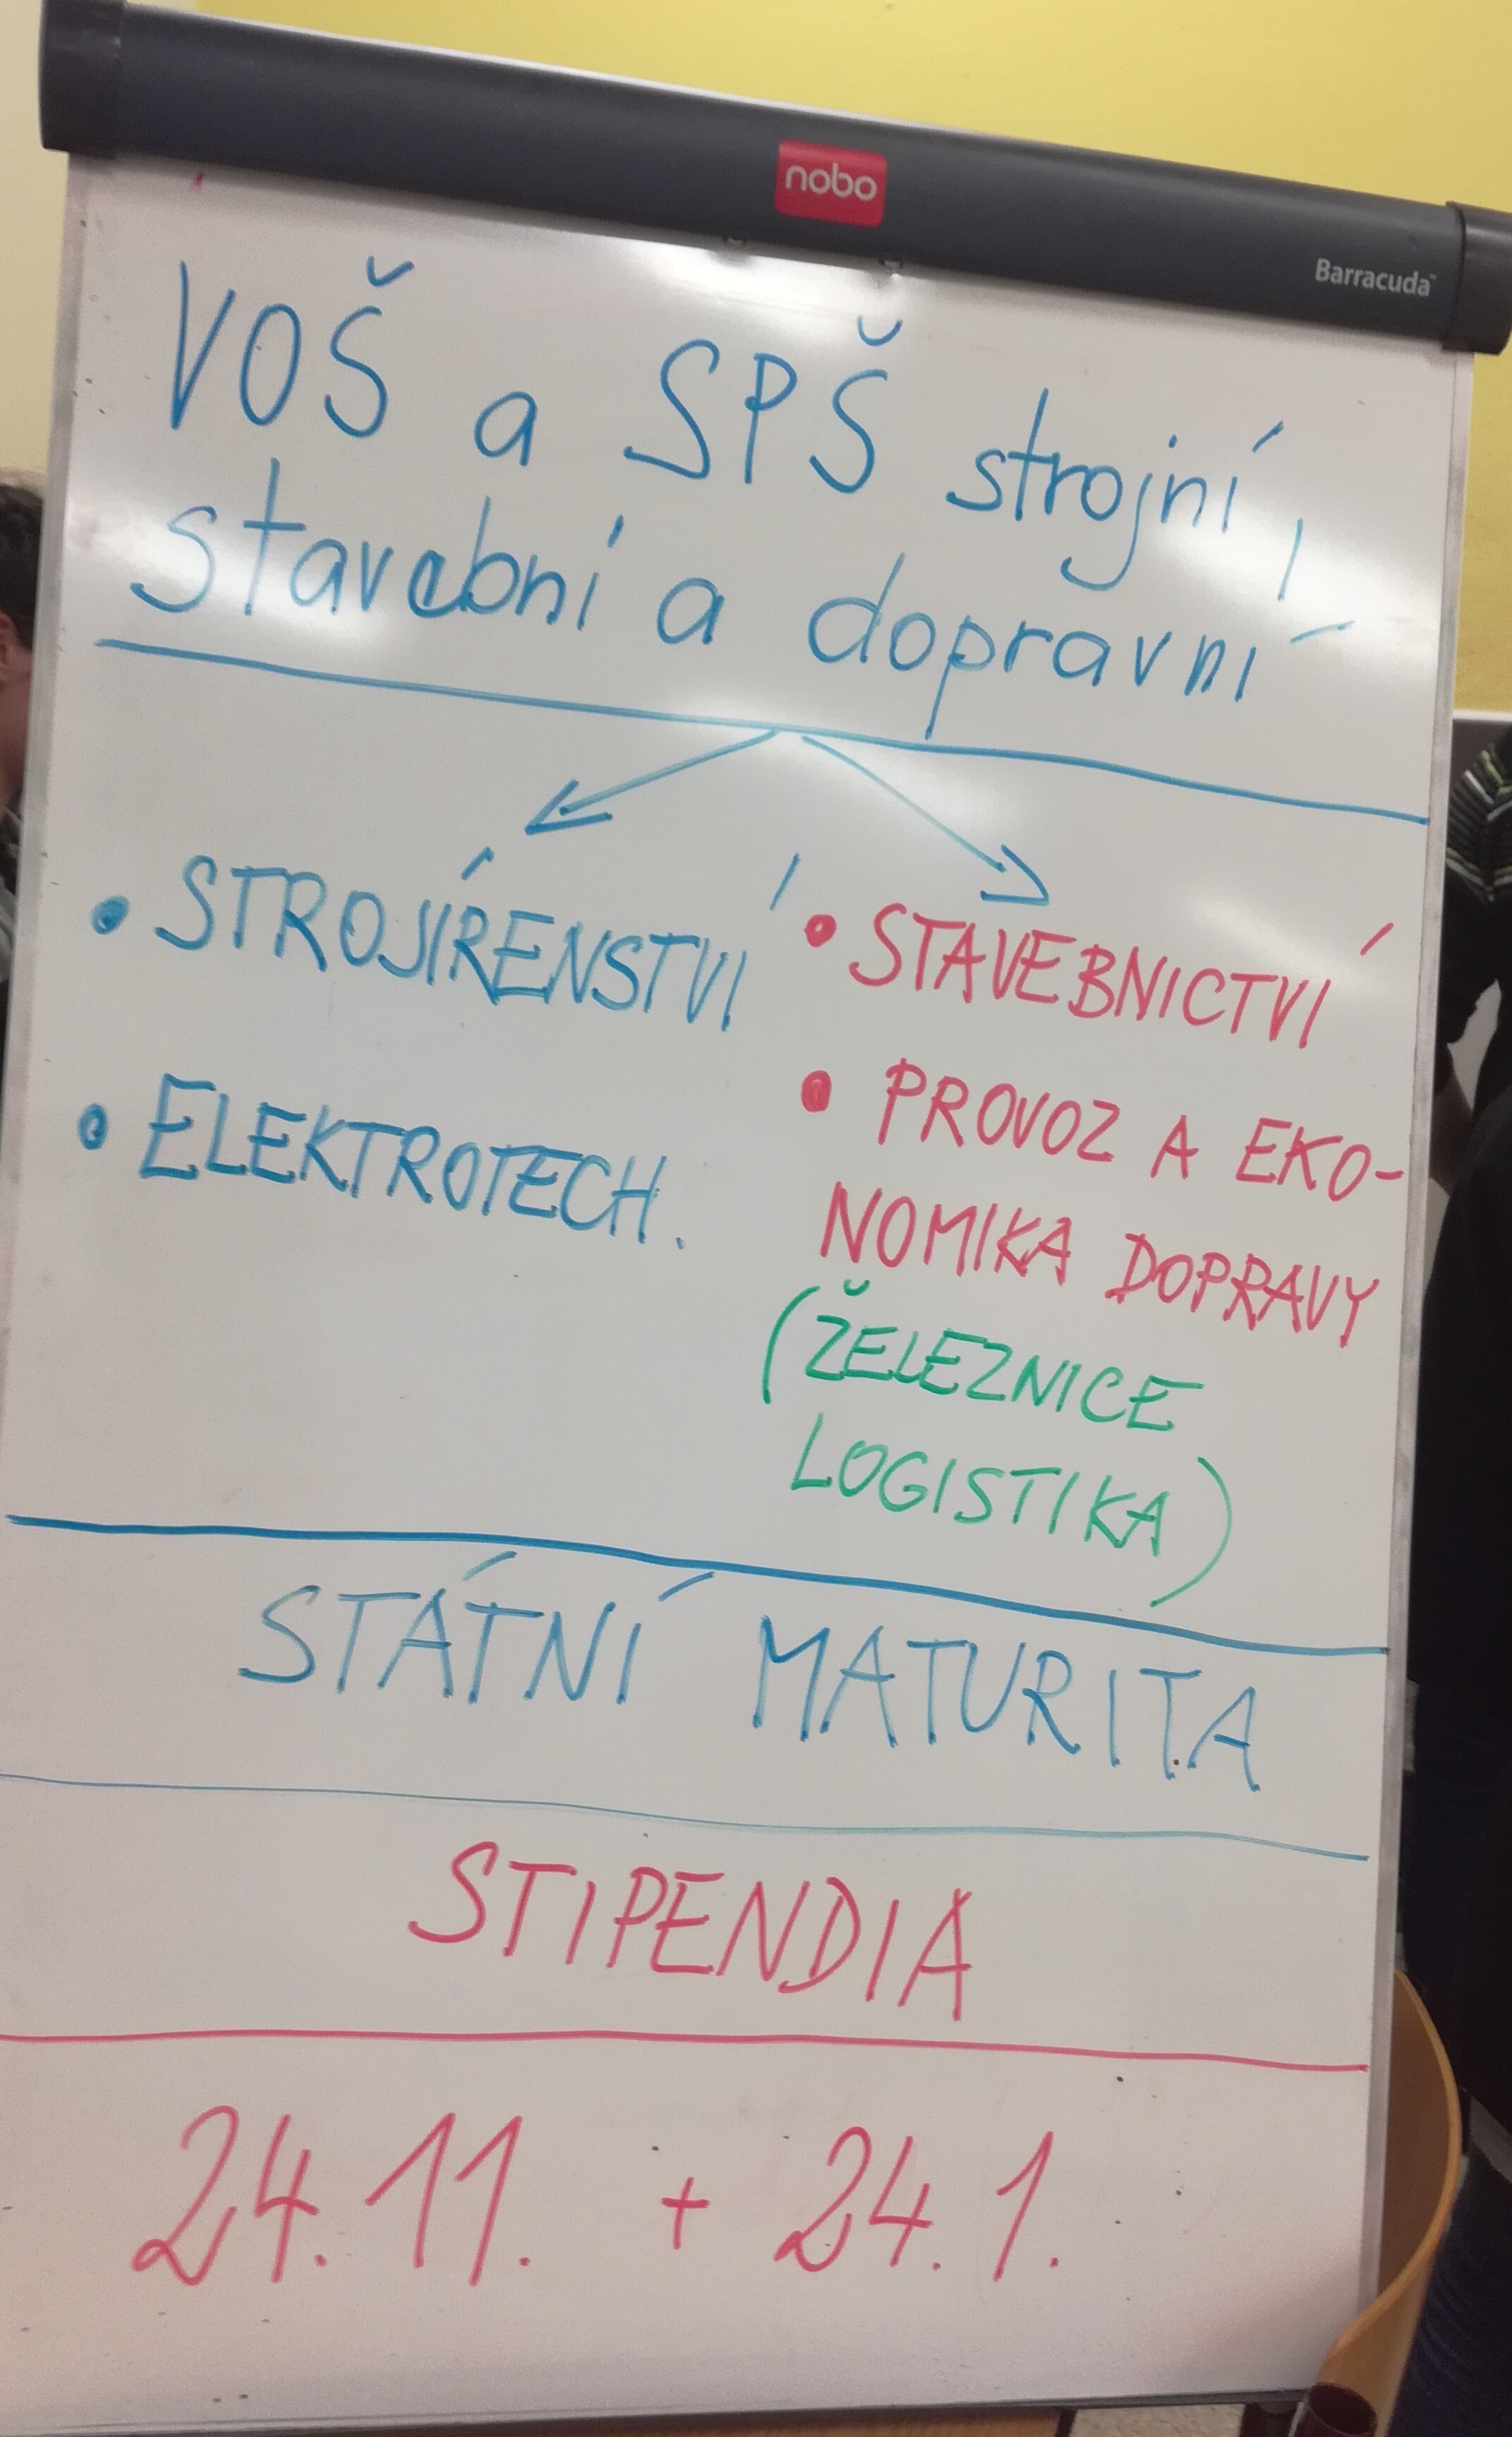 nobo
Barracuda™
VOŠ a SPŠ strojní,
stavební a dopravní
• STROJÍRENSTVÍ
• ELEKTROTECH.
• STAVEBNICTVÍ
• PROVOZ A EKO-
NOMIKA DOPRAVY
(ŽELEZNICE
LOGISTIKA)
STÁTNÍ MATURITA
STIPENDIA
24.11. + 24.1.